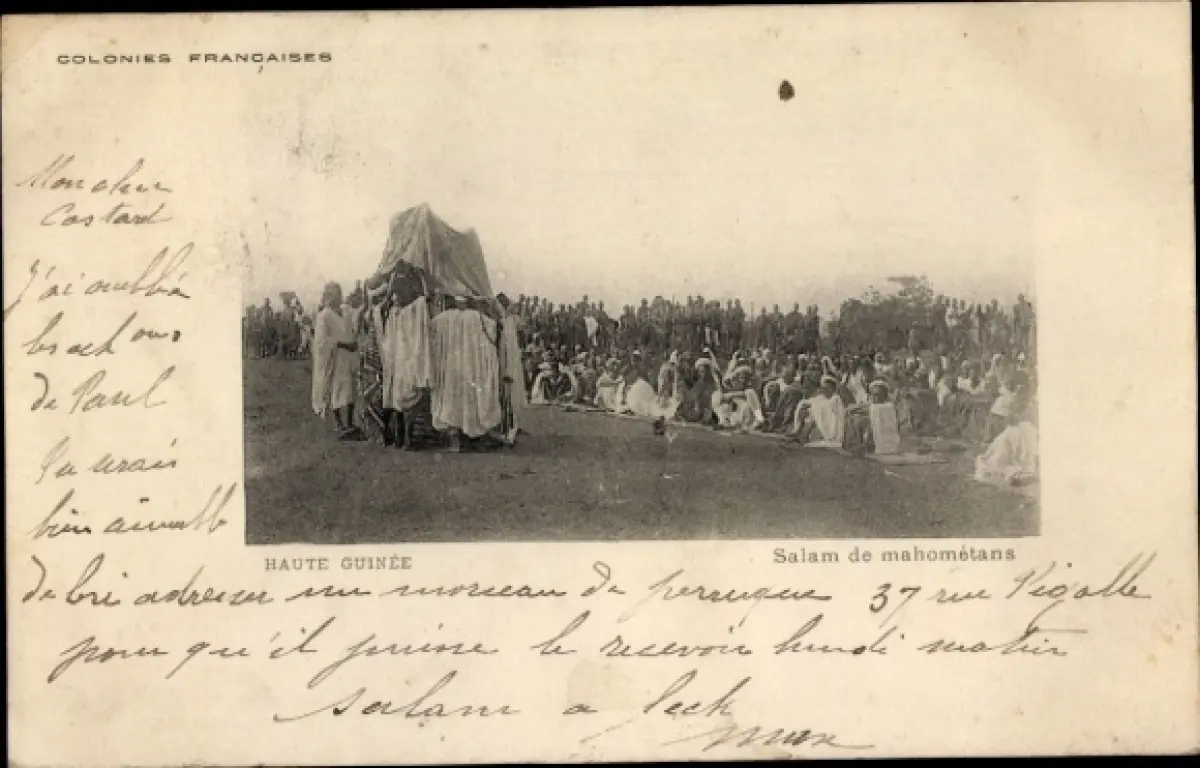 COLONIES FRANÇAISES
Mon cher
Costard
J'ai oublié
de Paul
Tu serais
bien aimable
de lui adresser un morceau de perruque 37 rue Pigalle
pour qu'il puisse le recevoir lundi matin
salam a leck
HAUTE GUINÉE
Salam de mahométans